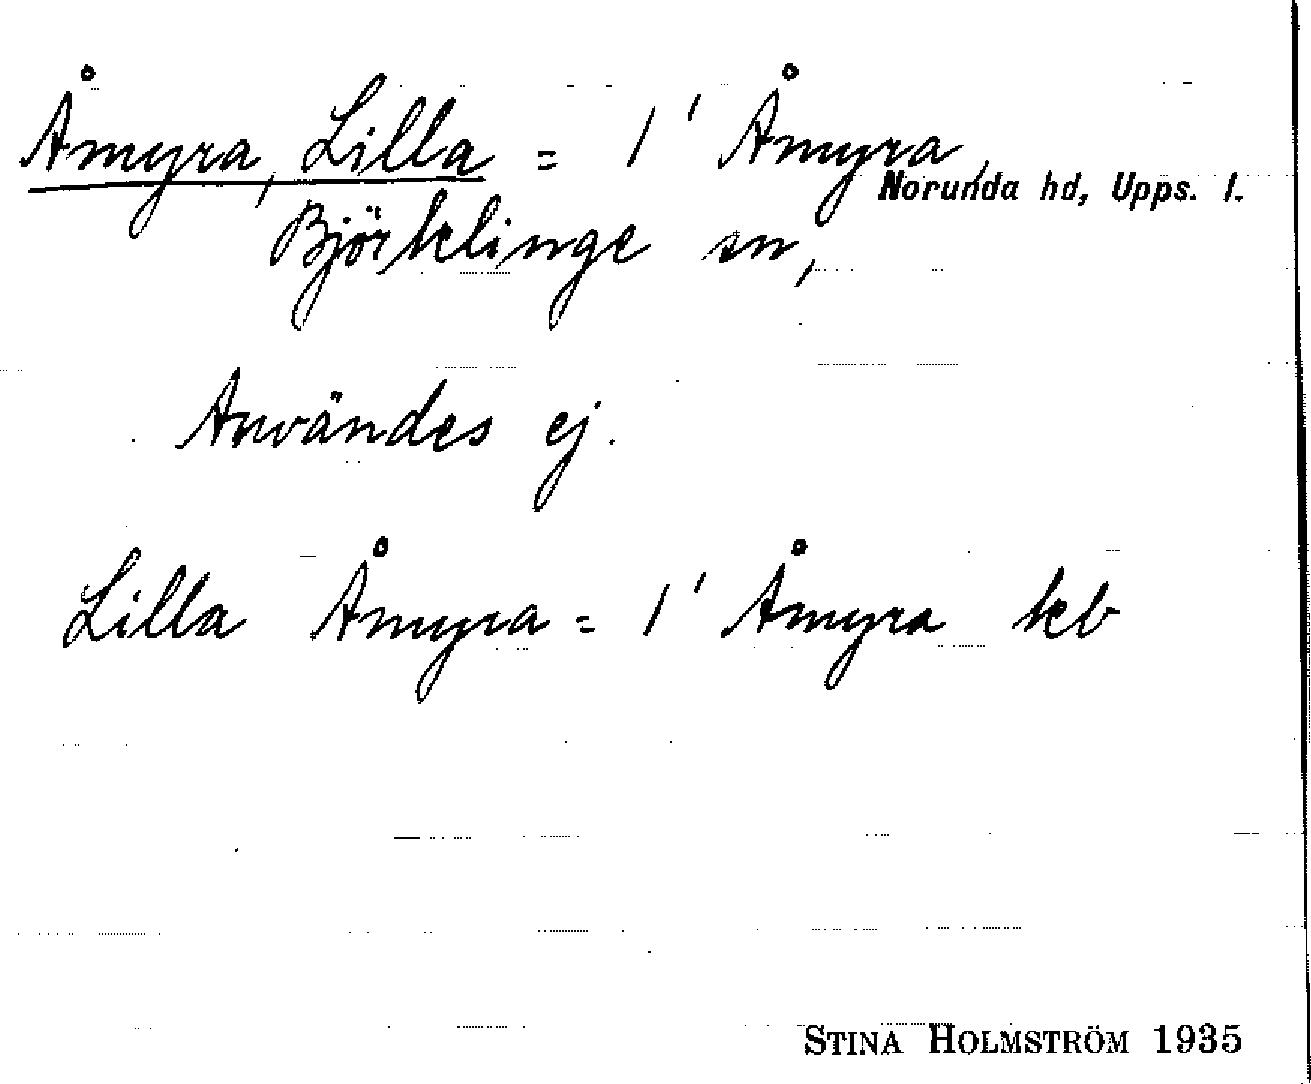 Åmyra, Lilla = 1' Åmyra,
Norunda hd, Upps. l.
Björklinge sn,
Användes ej.
Lilla Åmyra = 1' Åmyra kb
STINA HOLMSTRÖM 1935